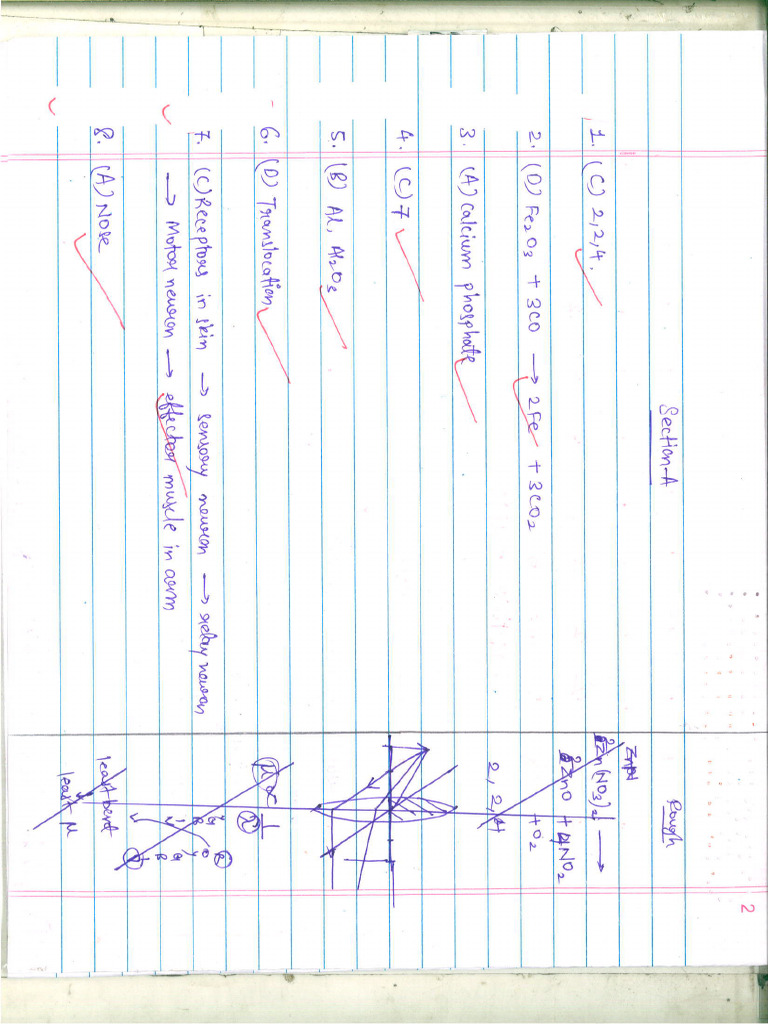 2
Section-A
1. (C) 2,2,4.
2. (D) Fe2O3 + 3CO → 2Fe + 3CO2
3. (A) calcium phosphate
4. (C) 7
5. (B) Al, Al2O3
6. (D) Translocation
7. (C) Receptors in skin → sensory neuron → relay neuron
→ Motor neuron → effector muscle in arm
8. (A) Nose
Rough
2Zn(NO3)2 →
2ZnO + 4NO2
+ O2
2, 2, 4
μ ∝ 1/λ
least bent
least μ